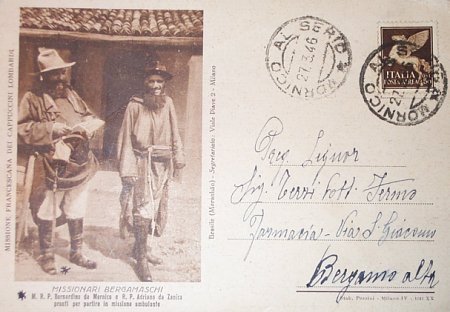 MISSIONE FRANCESCANA DEI CAPPUCCINI LOMBARDI
MISSIONARI BERGAMASCHI
M. R. P. Bernardino da Mornico e R. P. Adriano da Zanica
pronti per partire in missione ambulante
Brasile (Maranhão) - Segretariato: Viale Piave 2 - Milano
MORNICO AL SERIO
27.3.46
ITALIA
POSTA AEREA
MORNICO AL SERIO
27.
Preg. Signor
Sig. Terzi Dott. Fermo
Farmacia - Via S. Giacomo
Bergamo alta
Milano IV